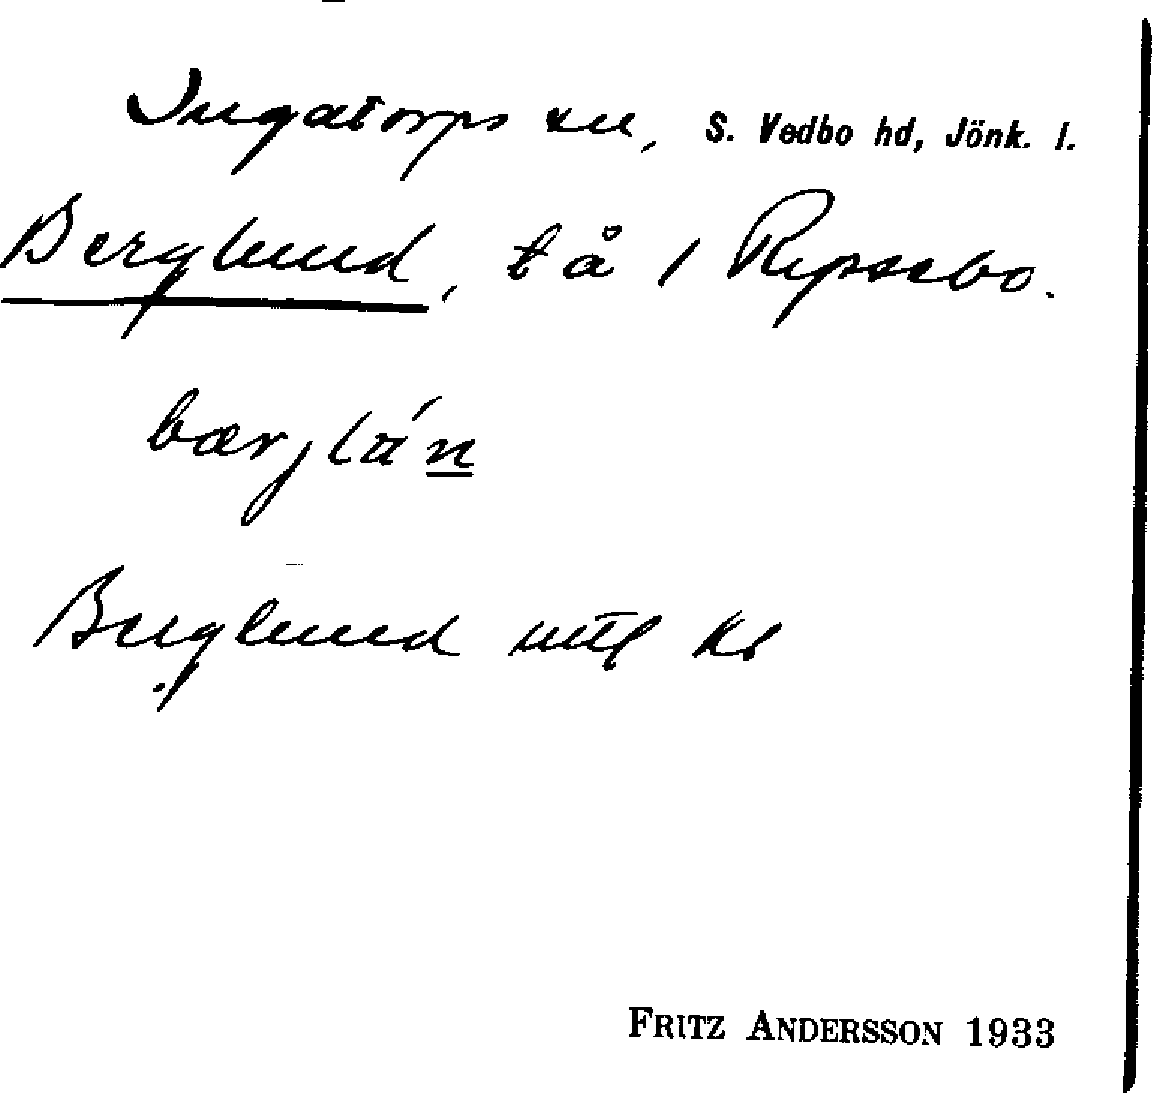 Ingatorps sn, S. Vedbo hd, Jönk. l.
Berglund, tå / Repsebo.
bærjlá́n
Berglund mtl kr
FRITZ ANDERSSON 1933